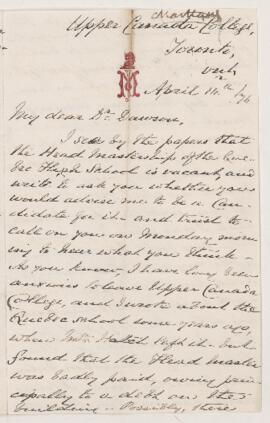 Upper Canada College,
Toronto,
Ont.
April 14th /76
My dear Dr. Dawson,
I see by the papers that
the Head Mastership of the Que-
bec High School is vacant, and
write to ask you whether you
would advise me to be a can-
didate for it - and trust to
call on you on Monday morn-
ing to hear what you think -
As you know, I have long been
anxious to leave Upper Canada
College, and I wrote about the
Quebec School some years ago,
when left it - but
found that the Head Master
was badly paid, owing prin-
cipally to a debt on the
building - Possibly, there